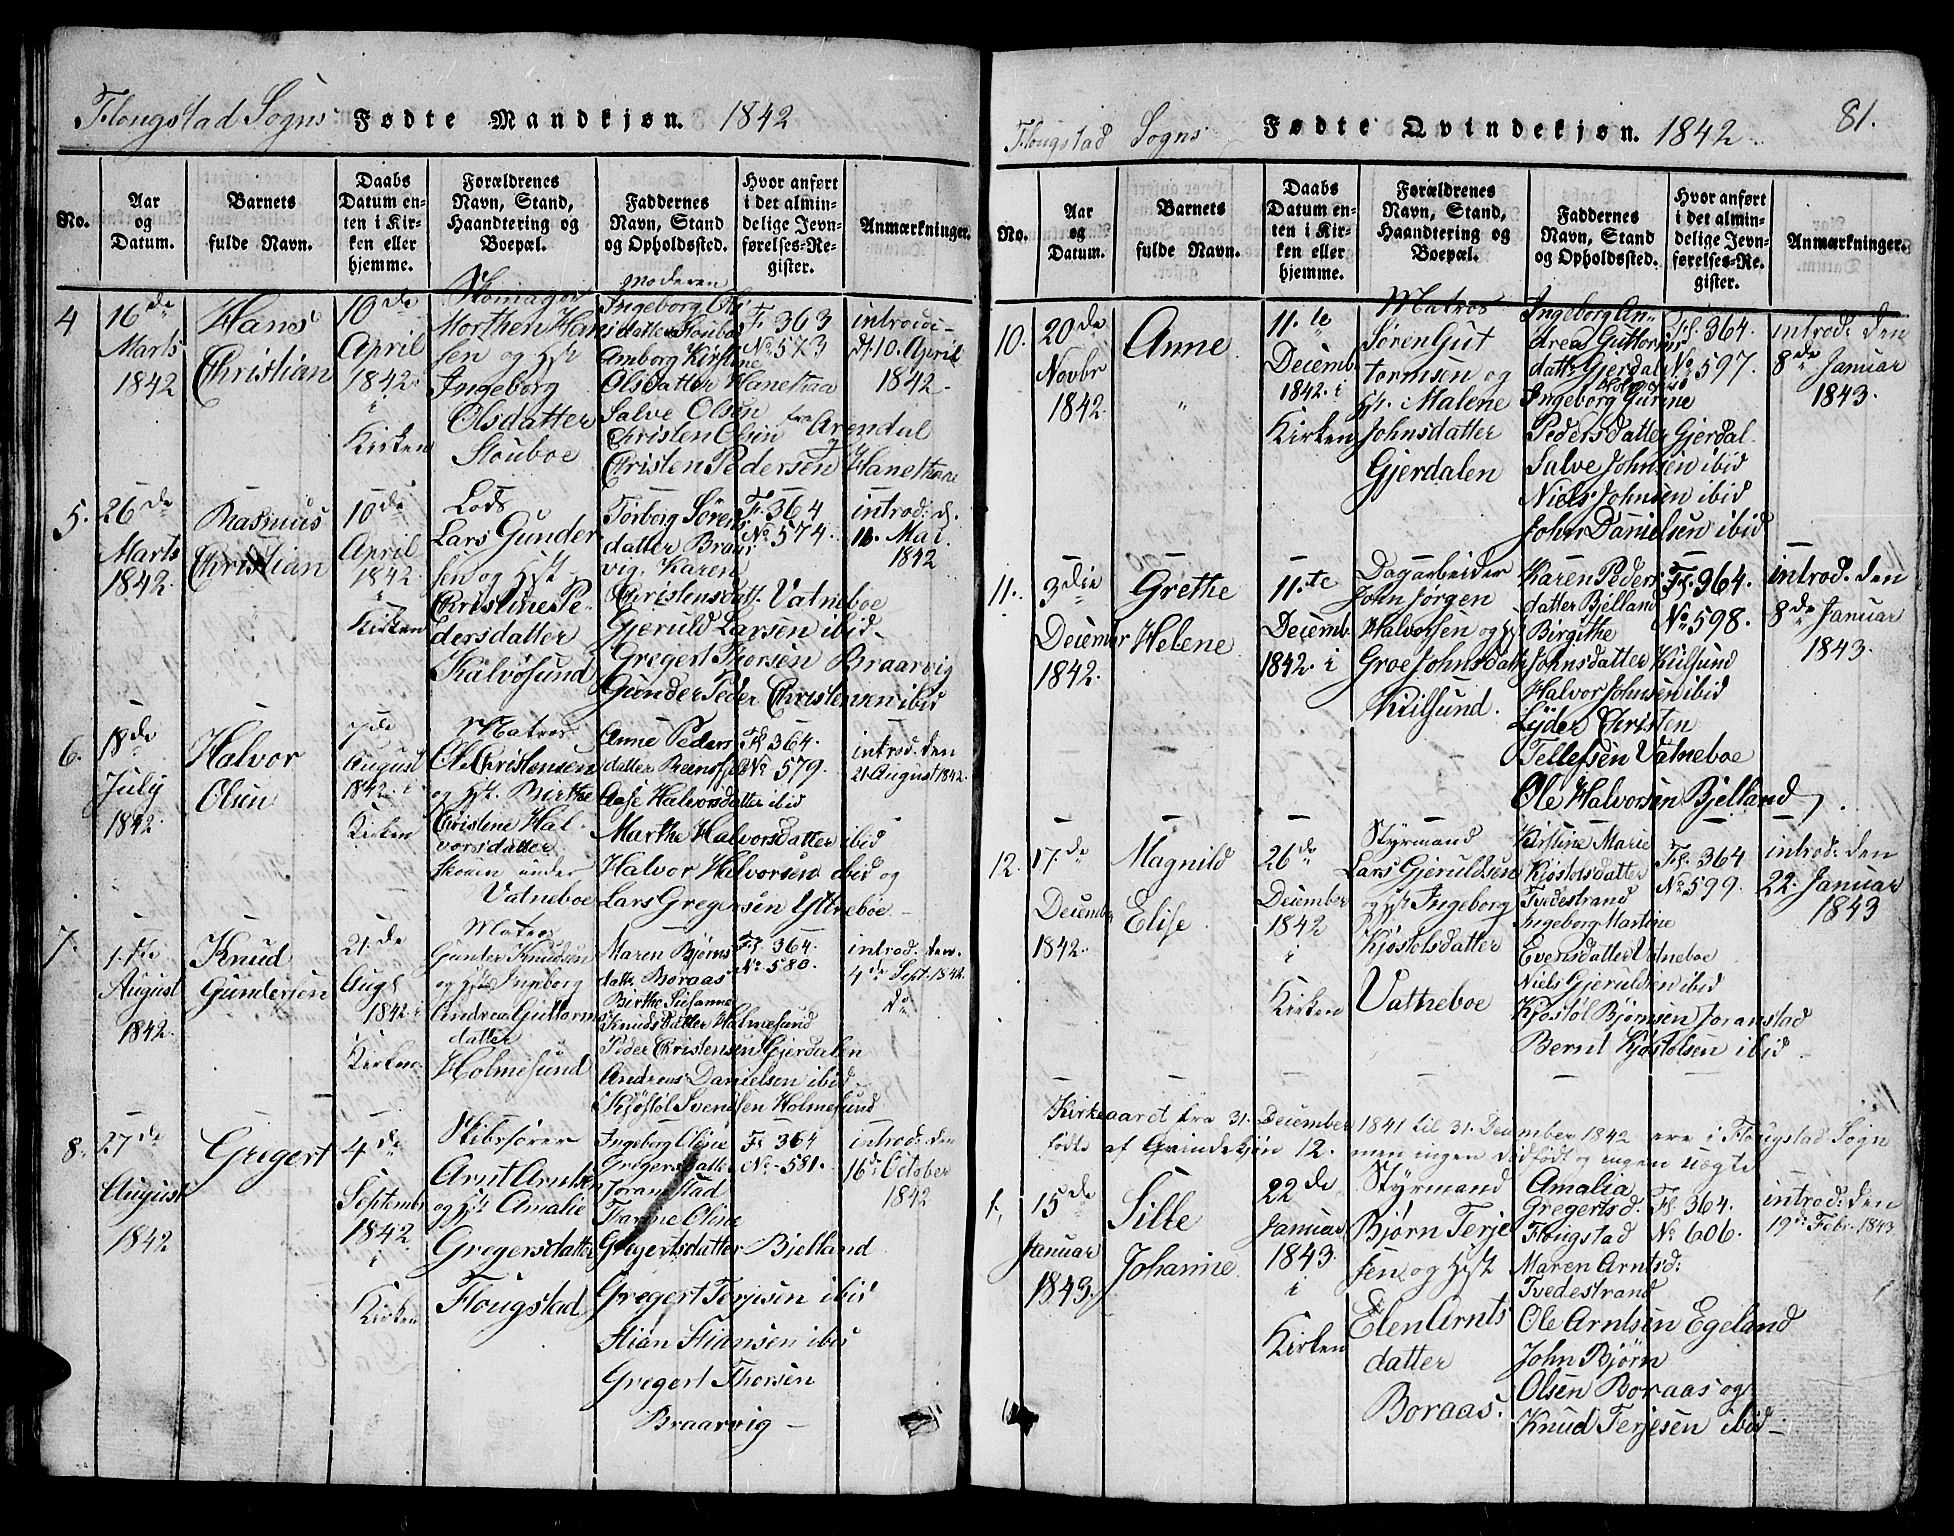 Flougstad Sogns Fødte Mandkjøn. 1842
No.
Aar og Datum.
Barnets fulde Navn.
Daabs Datum enten i Kirken eller hjemme.
Forældrenes Navn, Stand, Haandtering og Boepæl.
Faddernes Navn, Stand og Opholdssted.
Hvor anført i det almindelige Jevnførelses-Register.
Anmærkninger.
4
16de
Marts
1842
Hans
Christian
10de
April
1842
i
Kirken
Morthen Han
sen og Hst
Ingeborg
Olsdatter
Stouboe
Moderen
Amborg Kirstine
Olsdatter Hanethaa
Salve Olsen
Christen Olsen fra Arendal
Christen Pedersen Hanethaae
F. 363
No. 573
introd:
d. 10. April
1842
5.
26de
Marts
1842.
Rasmus
Christian
10de
April
1842
i
Kirken
Lods
Lars Gunder
sen og Hst
Christine Pe-
dersdatter
Kalvøsund
Torborg Sørens
datter Braar
vig. Karen
Christensdatt. Vatneboe
Gjeruld Larsen ibid
Gregert Thorsen Braarvig
Gunder Peder Christensen ibid
F. 364
No. 574.
introd: d.
16. Mai.
1842
6.
18de
July
1842
Halvor
Olsen
7de
August
1842. i
Kirken
Matros
Ole Christensen
og Hst. Birthe
Christine Hal-
vorsdatter
under
Vatneboe
Anne Peders
datter
Aase Halvorsdatter ibid
Marthe Halvorsdatter ibid
Halvor Halvorsen ibid og
Lars Gregersen Yttreboe
Fl 364.
No. 579.
introd: den
21 August 1842.
7.
1.ste
August
1842.
Knud
Gundersen
21.de
Augt
1842. i
Kirken.
Matros
Gunder Knudsen
og Hst Ingeborg
Andrea Guttorms
datter
Holmesund
Maren Bjørns
datt. Boraas
Birthe Susanne
Knudsdatter Holmesund
Peder Christensen Gjerdalen
Andreas Danielsen ibid
Kjøstøl Svendsen Holmesund
Fl. 364.
No. 580.
introd. den.
4de Sept. 1842.
8.
27de
August
1842
Gregert
4de
September
1842
i
Kirken
Skibsfører
Arnt Arntse
og Hst Amalie
Gregersdatter
Flougstad
Ingeborg Oline
Gregersdatter
Joranstad
Oline
Gregertsdatter Bjelland
Gregert Terjesen ibid
Stian Stiansen ibid
Gregert Thorsen
Braarvig
Fl 364
No. 581.
introd: den
16de October
1842
Flougstad Sogns Fødte Qvindekjøn. 1842. 81.
No.
Aar og Datum.
Barnets fulde Navn.
Daabs Datum enten i Kirken eller hjemme.
Forældrenes Navn, Stand, Haandtering og Boepæl.
Faddernes Navn, Stand og Opholdssted.
Hvor anført i det almindelige Jevnførelses-Register.
Anmærkninger.
10.
20de
Novbr
1842.
Anne
11.te
Decemb.
1842. i
Kirken
Matros
Søren Gut
tormsen og
Hst. Malene
Johnsdatter
Gjerdalen
Ingeborg An-
drea Guttorms
datt. Gjerdal
Ingeborg Gurine
Pedersdatter Gjerdal-
Salve Johnsen ibid
Niels Johnsen ibid
John Danielsen ibid
Fl. 364.
No. 597.
introd: den
8de Januar
1843.
11.
3die
December
1842.
Grethe
Helene
11.te
Decemb.
1842. i
Dagarbeider
John Jørgen
Halvorsen og Hst
Groe Johnsdatt
Kiilsund.
Karen Peders
datter Bjelland
Birgithe
Johnsdatter Kiilsund
Halvor Johnsen ibid
Lyder Christen
Tellefsen Vatneboe
Ole Halvorsen Bjelland
Fl. 364.
No. 598.
introd: den
8de Januar
1843.
12.
17.de
December
1842.
Magnild
Elise
26de
December
1842
i
Kirken
Styrmand
Lars Gjeruldsen
og Hst Ingeborg
Kjøstolsdatter
Vatneboe
Kirstine Marie
Kjøstolsdatter
Tvedestrand
Ingeborg Martine
Evensdatter Vatneboe
Niels Gjeruldsen ibid
Kjøstøl Bjørnsen Joranstad
Bernt Kjøstolsen ibid
Fl. 364
No. 599.
introd: den
22. Januar
1843
Kirkeaaret fra 31. December 1841 til 31. December 1842 ere i Flougstad Sogn
fødte af Qvindekjøn 12. men ingen dødfødt og ingen uægte
1,
15de
Januar
1843.
Sille
Johanne.
22de
Januar
1843.
i
Kirken
Styrmand
Bjørn Terje
sen og Hst
Elen Arnts
datter
Boraas.
Amalia
Gregertsd.
Flougstad
Maren Arntsd:
Tvedestrand
Ole Arntsen Egeland
John Bjørn
Olsen Boraas og
Knud Terjesen ibid
Fl. 364.
No 606.
introd: den
19de Febr. 1843